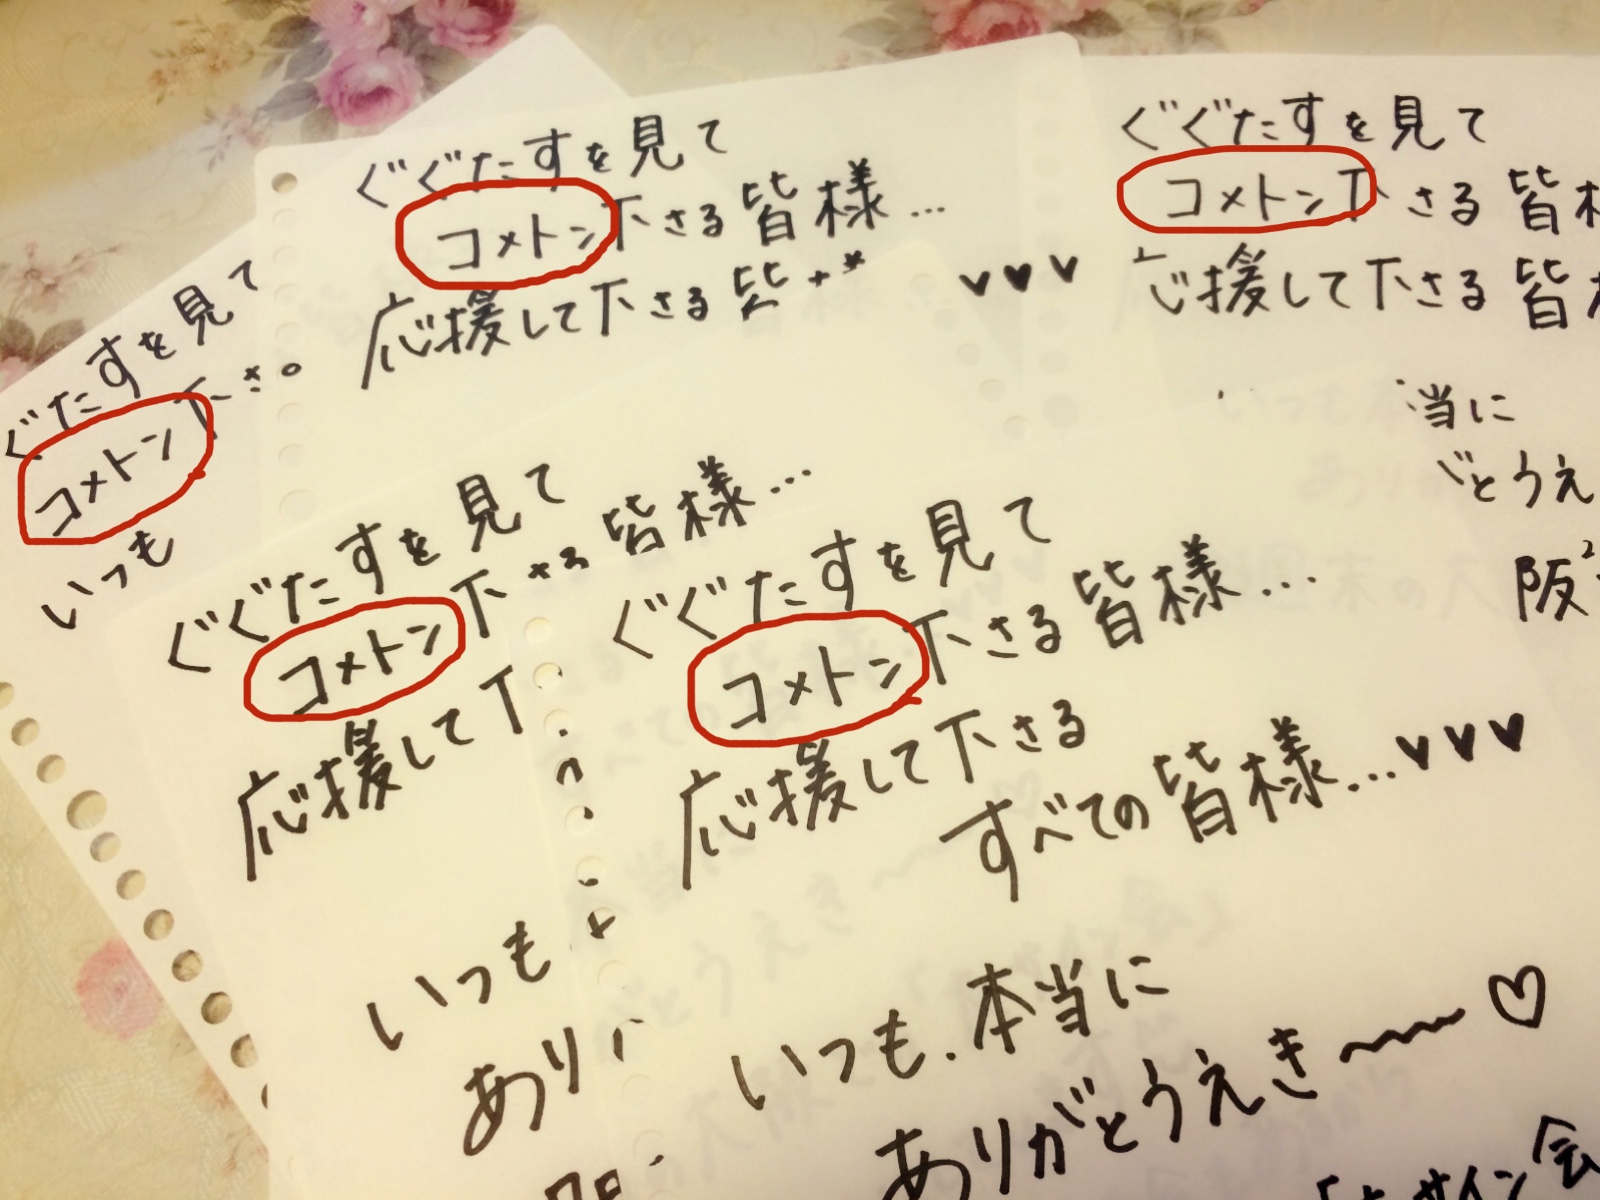 ぐぐたすを見て
コメトン下さる皆様…
応援して下さる皆
♥♥♥
ぐぐたすを見て
コメトン下さる皆
応援して下さる皆
当に
がとうえ
阪
ぐたすを見て
コメトン下さ
いつも
ぐぐたすを見て
コメトン下さる皆様…
応援して下
いつも
あり
ぐぐたすを見て
コメトン下さる皆様…
応援して下さる
すべての皆様…♥♥♥
いつも、本当に
ありがとうえき〜〜〜♡
サイン会